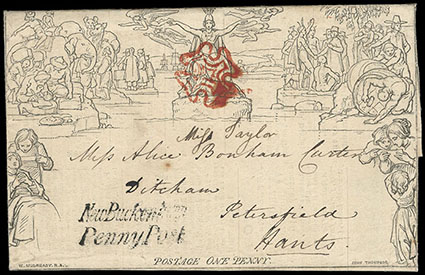 Miss Taylor
Miss Alice Bonham Carter
Ditcham
Petersfield
Hants.
New Buckenham
Penny Post
POSTAGE ONE PENNY.
W. MULREADY, R.A.
JOHN THOMPSON.